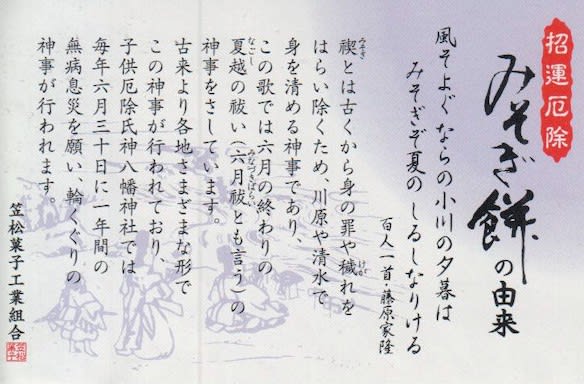 招運厄除
みそぎ餅の由来
風そよぐ ならの小川の夕暮は
みそぎぞ夏の しるしなりける
百人一首・藤原家隆
禊とは古くから身の罪や穢れを
みそぎ
けが
はらい除くため、川原や清水で
身を清める神事であり、
この歌では六月の終わりの
夏越の祓い（六月祓とも言う）の
なごし
みなづきばらい
神事をさしています。
古来より各地さまざまな形で
この神事が行われており、
子供厄除氏神八幡神社では
毎年六月三十日に一年間の
無病息災を願い、輪くぐりの
神事が行われます。
笠松菓子工業組合